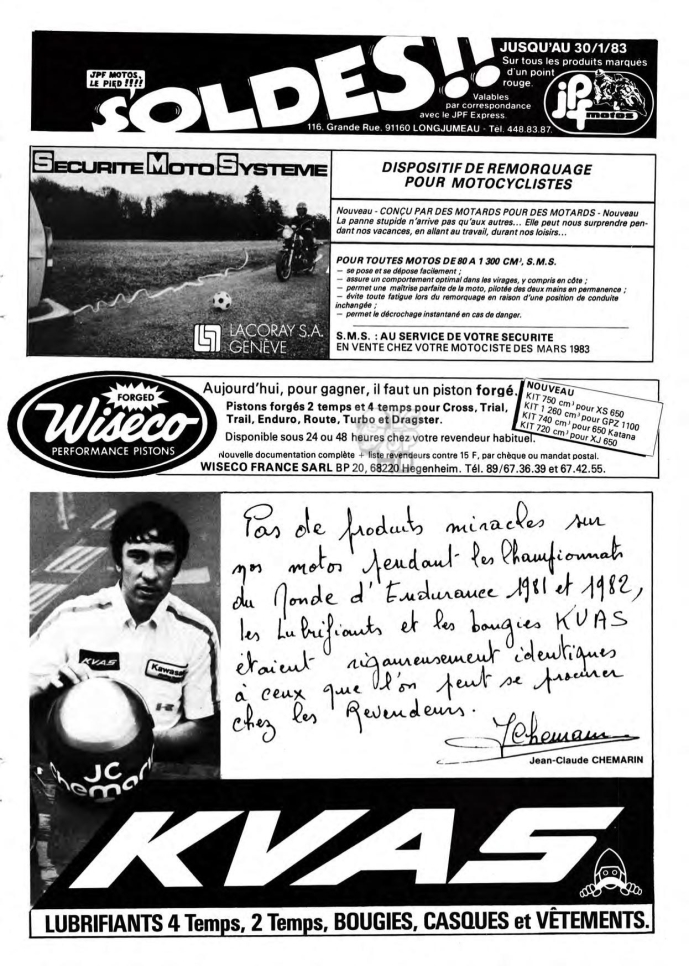 JPF MOTOS,
LE PIED !!!!
SOLDES!!
JUSQU'AU 30/1/83
Sur tous les produits marqués
d'un point
rouge.
Valables
par correspondance
avec le JPF Express.
JPF
motos
116, Grande Rue, 91160 LONGJUMEAU - Tél. 448.83.87.
SECURITE MOTO SYSTEME
LACORAY S.A.
GENÈVE
DISPOSITIF DE REMORQUAGE
POUR MOTOCYCLISTES
Nouveau - CONÇU PAR DES MOTARDS POUR DES MOTARDS - Nouveau
La panne stupide n'arrive pas qu'aux autres... Elle peut nous surprendre pen-
dant nos vacances, en allant au travail, durant nos loisirs...
POUR TOUTES MOTOS DE 80 A 1 300 CM³, S.M.S.
— se pose et se dépose facilement ;
— assure un comportement optimal dans les virages, y compris en côte ;
— permet une maîtrise parfaite de la moto, pilotée des deux mains en permanence ;
— évite toute fatigue lors du remorquage en raison d'une position de conduite
inchangée ;
— permet le décrochage instantané en cas de danger.
S.M.S. : AU SERVICE DE VOTRE SECURITE
EN VENTE CHEZ VOTRE MOTOCISTE DES MARS 1983
FORGED
Wiseco
PERFORMANCE PISTONS
Aujourd'hui, pour gagner, il faut un piston forgé.
Pistons forgés 2 temps et 4 temps pour Cross, Trial,
Trail, Enduro, Route, Turbo et Dragster.
Disponible sous 24 ou 48 heures chez votre revendeur habituel.
Nouvelle documentation complète + liste revendeurs contre 15 F, par chèque ou mandat postal.
WISECO FRANCE SARL BP 20, 68220 Hegenheim. Tél. 89/67.36.39 et 67.42.55.
NOUVEAU
KIT 750 cm³ pour XS 650
KIT 1 260 cm³ pour GPZ 1100
KIT 740 cm³ pour 650 Katana
KIT 720 cm³ pour XJ 650
Pas de produits miracles sur
nos motos pendant les Championnats
du Monde d'Endurance 1981 et 1982,
les Lubrifiants et les bougies KVAS
étaient rigoureusement identiques
à ceux que l'on peut se procurer
chez les Revendeurs.
JChemarin
Jean-Claude CHEMARIN
KVAS
Kawasaki
JC
Chemarin
KVAS
LUBRIFIANTS 4 Temps, 2 Temps, BOUGIES, CASQUES et VÊTEMENTS.